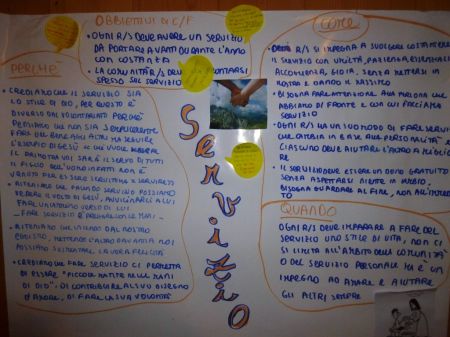 OBBIETTIVI DI C/F
• OGNI R/S DEVE AVERE UN SERVIZIO
DA PORTARE AVANTI DURANTE L'ANNO
CON COSTANZA
• LA COMUNITÀ R/S DEVE
SPESSO SUL SERVIZIO
PERCHÉ
• CREDIAMO CHE IL SERVIZIO SIA
LO STILE DI DIO, PER QUESTO È
DIVERSO DAL VOLONTARIATO PERCHÉ
PENSIAMO CHE NON SIA SEMPLICEMENTE
FARE DEL BENE AGLI ALTRI MA SEGUIRE
L'ESEMPIO DI GESÙ
IL FIGLIO DELL'UOMO INFATTI NON È
VENUTO PER ESSERE SERVITO MA X SERVIRE
• RITENIAMO CHE FACENDO SERVIZIO POSSIAMO
VEDERE IL VOLTO DI GESÙ, AVVICINARCI A LUI
FARE UN VERSO DI LUI
- FARE SERVIZIO È PREGARE CON LE MANI -
• RITENIAMO CHE USCENDO DAL NOSTRO
EGOISMO, METTENDO L'ALTRO DAVANTI A NOI
POSSIAMO LA VERA FELICITÀ
• CREDIAMO CHE FARE SERVIZIO CI PERMETTA
DI ESSERE "PICCOLE MATITE NELLE MANI
DI DIO", DI CONTRIBUIRE AL SUO DISEGNO
D'AMORE, DI FARE LA SUA VOLONTÀ
Servizio
COME
• OGNI R/S SI IMPEGNA A SVOLGERE COSTANTEMENTE
IL SERVIZIO CON UMILTÀ, PAZIENZA, ESSENZIALITÀ
ACCOGLIENZA, GIOIA, SENZA METTERSI IN
MOSTRA E DANDO IL MASSIMO
• BISOGNA FARE ATTENZIONE ALLA PERSONA CHE
ABBIAMO DI FRONTE E CON CUI FACCIAMO
SERVIZIO
• OGNI R/S HA UN SUO MODO DI FARE SERVIZIO
CHE CAMBIA IN BASE ALLA PERSONALITÀ E
CIASCUNO DEVE AIUTARE L'ALTRO A MIGLIORARE
• IL SERVIZIO DEVE ESSERE UN DONO GRATUITO
SENZA ASPETTARSI NIENTE IN CAMBIO,
BISOGNA GUARDARE AL FINE, NON
QUANDO
OGNI R/S DEVE IMPARARE A FARE DEL
SERVIZIO UNO STILE DI VITA, NON CI
SI LIMITA ALL'AMBITO DELLA COMUNITÀ
O DEL SERVIZIO PERSONALE MA È UN
IMPEGNO AD AMARE E AIUTARE
GLI ALTRI SEMPRE